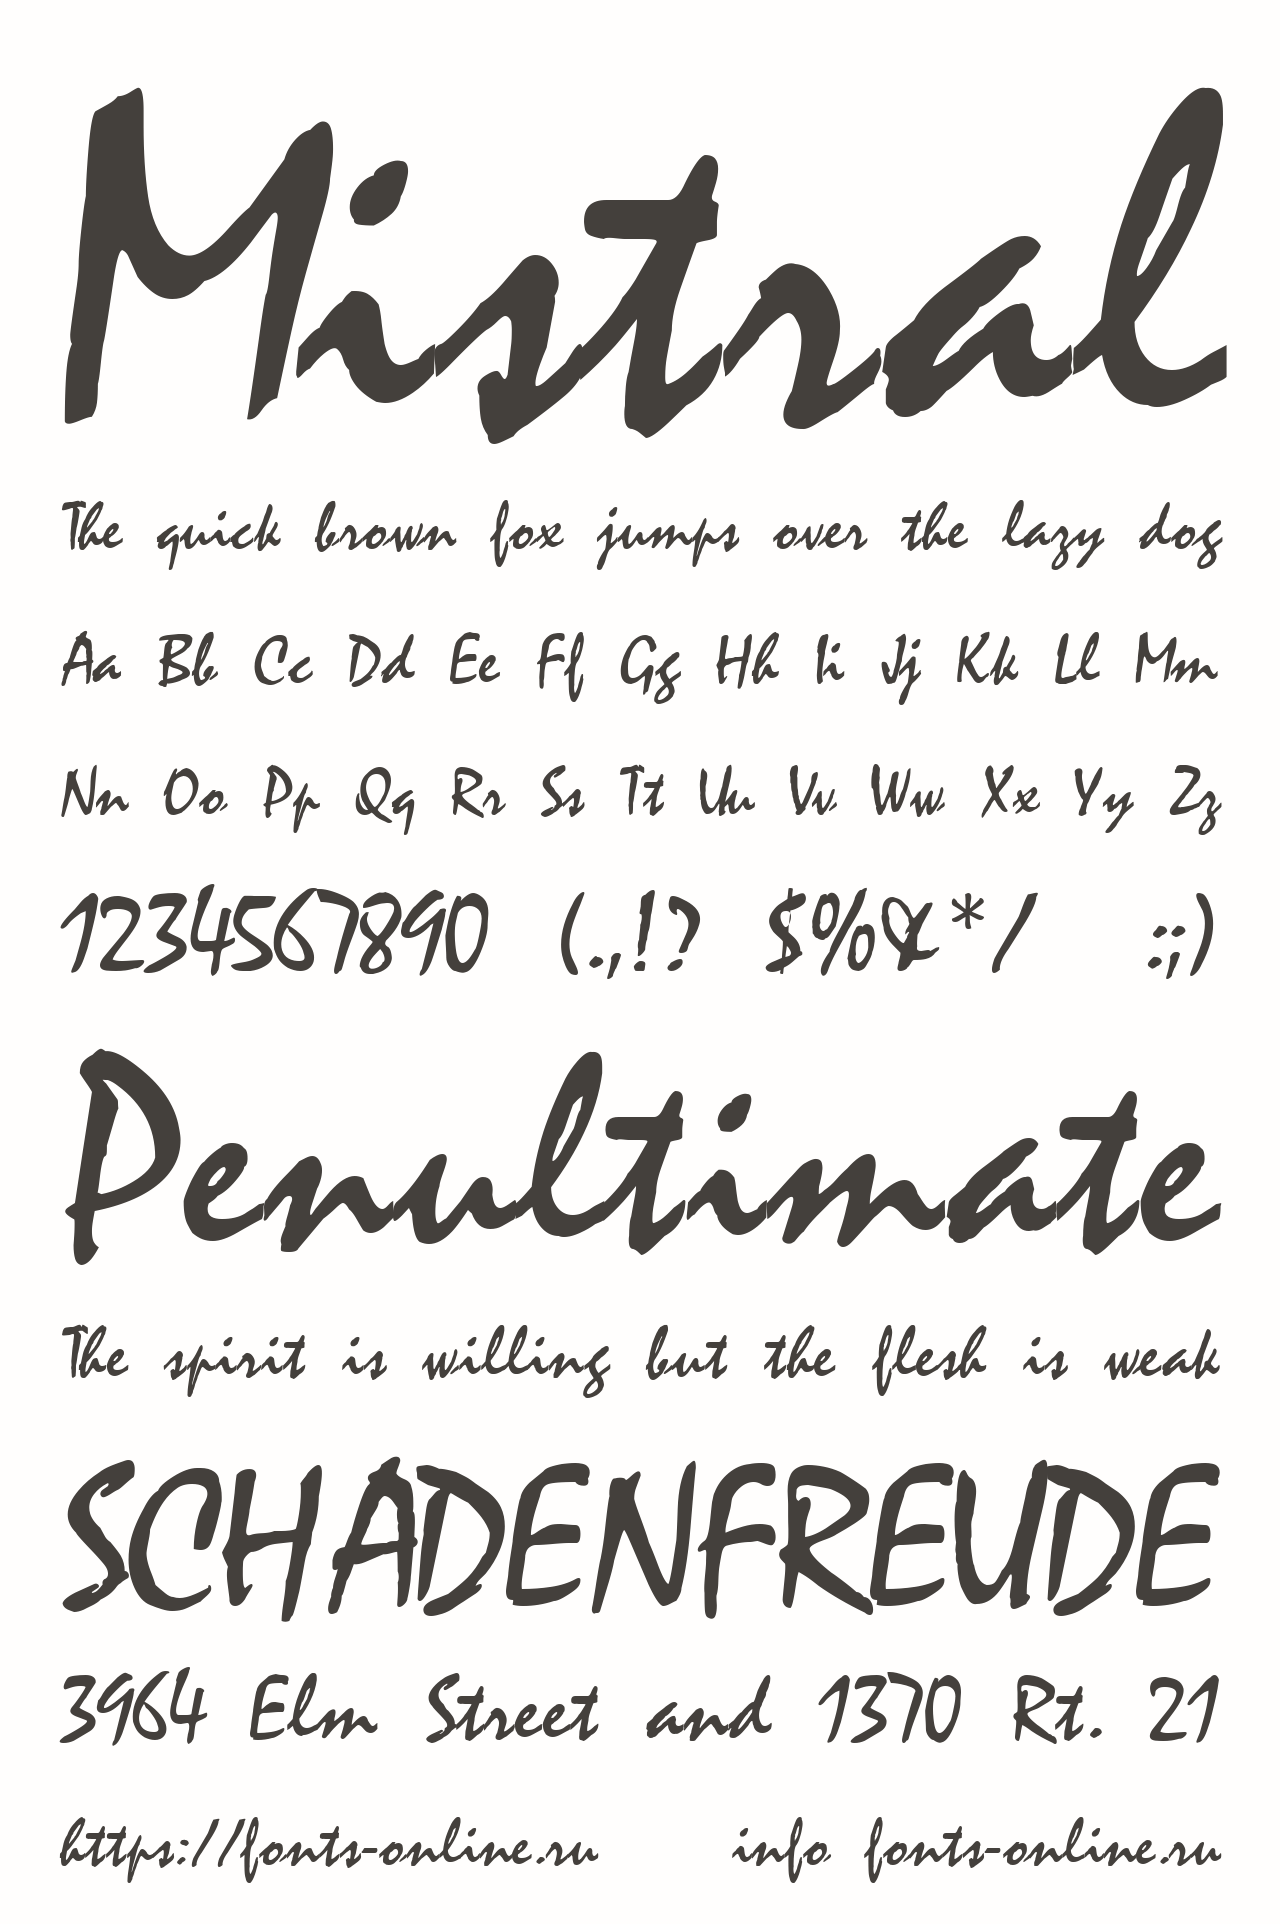 Mistral
The quick brown fox jumps over the lazy dog
Aa Bb Cc Dd Ee Ff Gg Hh Ii Jj Kk Ll Mm
Nn Oo Pp Qq Rr Ss Tt Uu Vv Ww Xx Yy Zz
1234567890 (.,!? $%&*/ :;)
Penultimate
The spirit is willing but the flesh is weak
SCHADENFREUDE
3964 Elm Street and 1370 Rt. 21
https://fonts-online.ru info fonts-online.ru